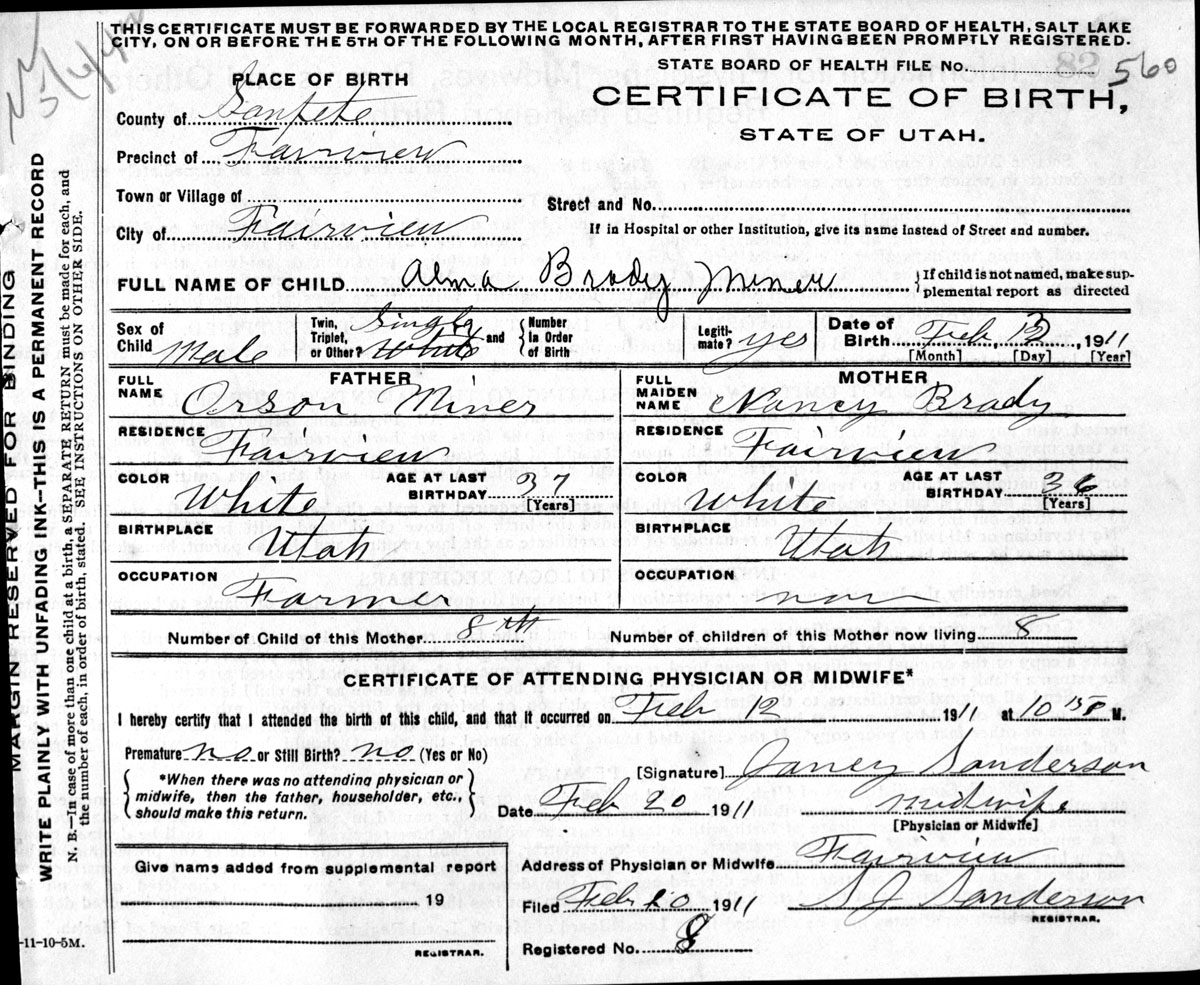 THIS CERTIFICATE MUST BE FORWARDED BY THE LOCAL REGISTRAR TO THE STATE BOARD OF HEALTH, SALT LAKE
CITY, ON OR BEFORE THE 5TH OF THE FOLLOWING MONTH, AFTER FIRST HAVING BEEN PROMPTLY REGISTERED.
PLACE OF BIRTH
STATE BOARD OF HEALTH FILE No. 560
County of Sanpete
CERTIFICATE OF BIRTH,
STATE OF UTAH.
Precinct of Fairview
Town or Village of
Street and No.
City of Fairview
If in Hospital or other Institution, give its name instead of Street and number.
FULL NAME OF CHILD Alma Brady Miner
If child is not named, make sup-
plemental report as directed
Sex of Child Male
Twin, Triplet, or Other? Single White and
Number in Order of Birth
Legiti-mate? yes
Date of Birth Feb 1911
[Month] [Day] [Year]
FATHER
MOTHER
FULL NAME Orson Miner
FULL MAIDEN NAME Nancy Brady
RESIDENCE Fairview
RESIDENCE Fairview
COLOR White AGE AT LAST BIRTHDAY 37 [Years]
COLOR White AGE AT LAST BIRTHDAY 36 [Years]
BIRTHPLACE Utah
BIRTHPLACE Utah
OCCUPATION Farmer
OCCUPATION non
Number of Child of this Mother 8th
Number of children of this Mother now living 8
CERTIFICATE OF ATTENDING PHYSICIAN OR MIDWIFE*
I hereby certify that I attended the birth of this child, and that it occurred on Feb 12 1911 at 10 M.
Premature no or Still Birth? no (Yes or No)
*When there was no attending physician or
midwife, then the father, householder, etc.,
should make this return.
[Signature] Janey Sanderson
Date Feb 20 1911 midwife
[Physician or Midwife]
Give name added from supplemental report
19
REGISTRAR.
Address of Physician or Midwife Fairview
Filed Feb 20 1911 Sanderson
REGISTRAR.
Registered No. 8
MARGIN RESERVED FOR BINDING
WRITE PLAINLY WITH UNFADING INK—THIS IS A PERMANENT RECORD
N. B.—In case of more than one child at a birth, a SEPARATE RETURN must be made for each, and
the number of each, in order of birth, stated. SEE INSTRUCTIONS ON OTHER SIDE.
-11-10-5M.